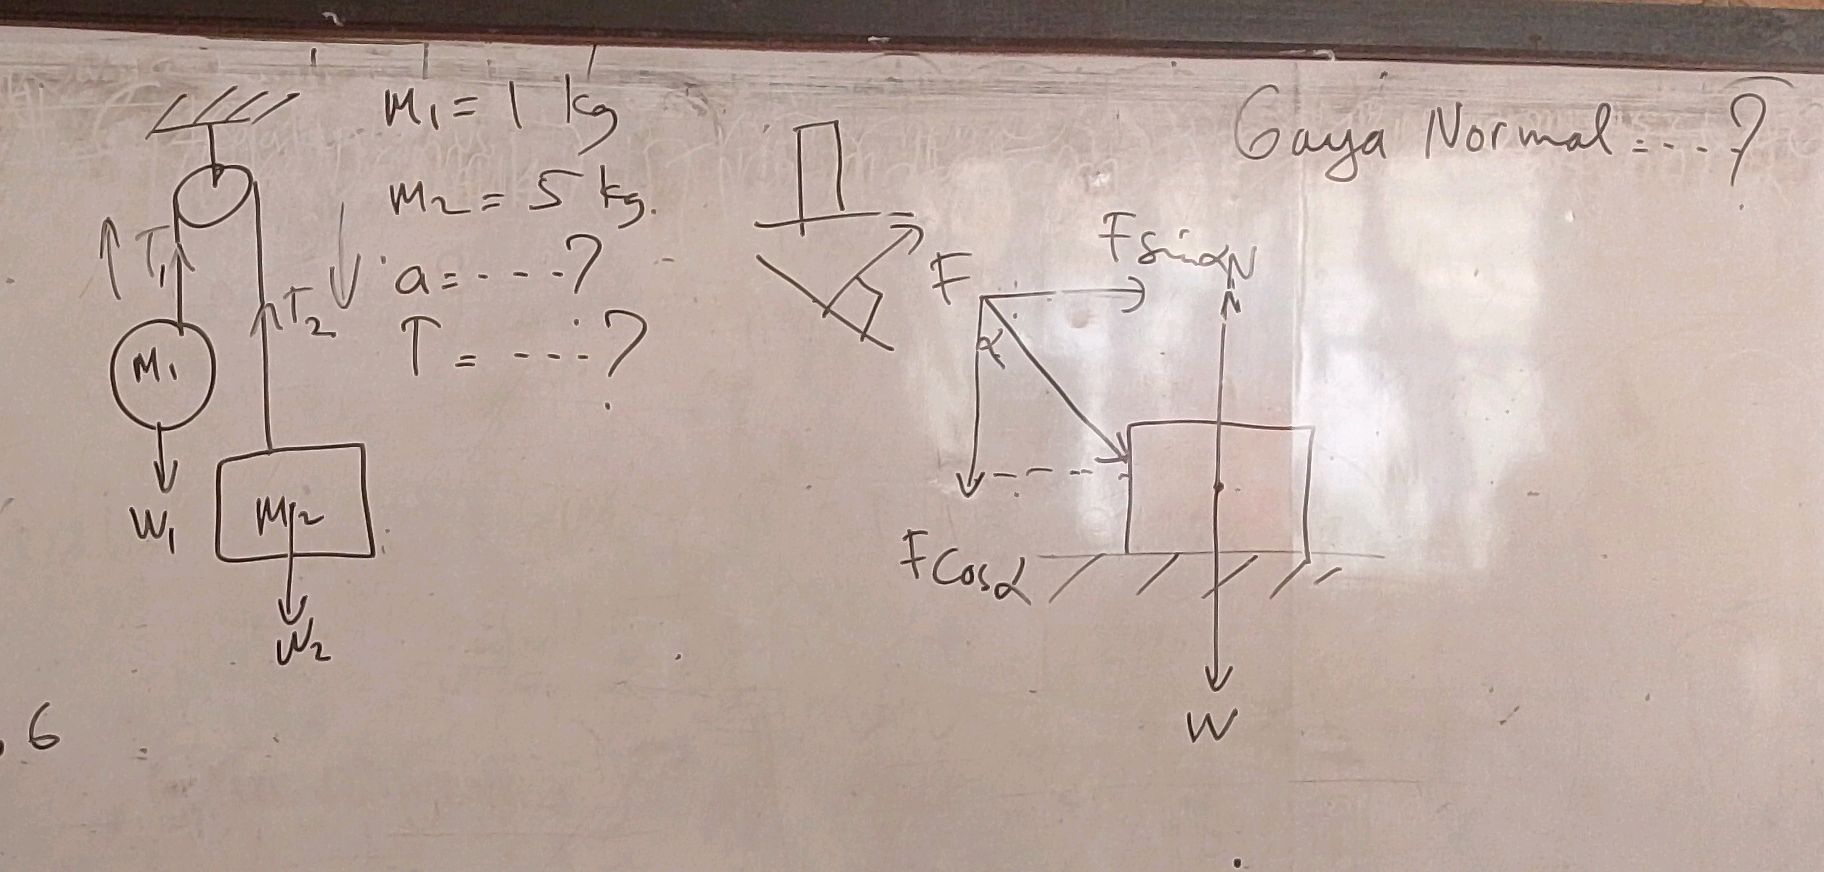 m₁ = 1 kg
m₂ = 5 kg.
a = - - - ?
T = - - - ?
T₁
T₂
M₁
W₁
M₂
W₂
6
Gaya Normal = - - - ?
F
F sin α
N
α
F cos α
W